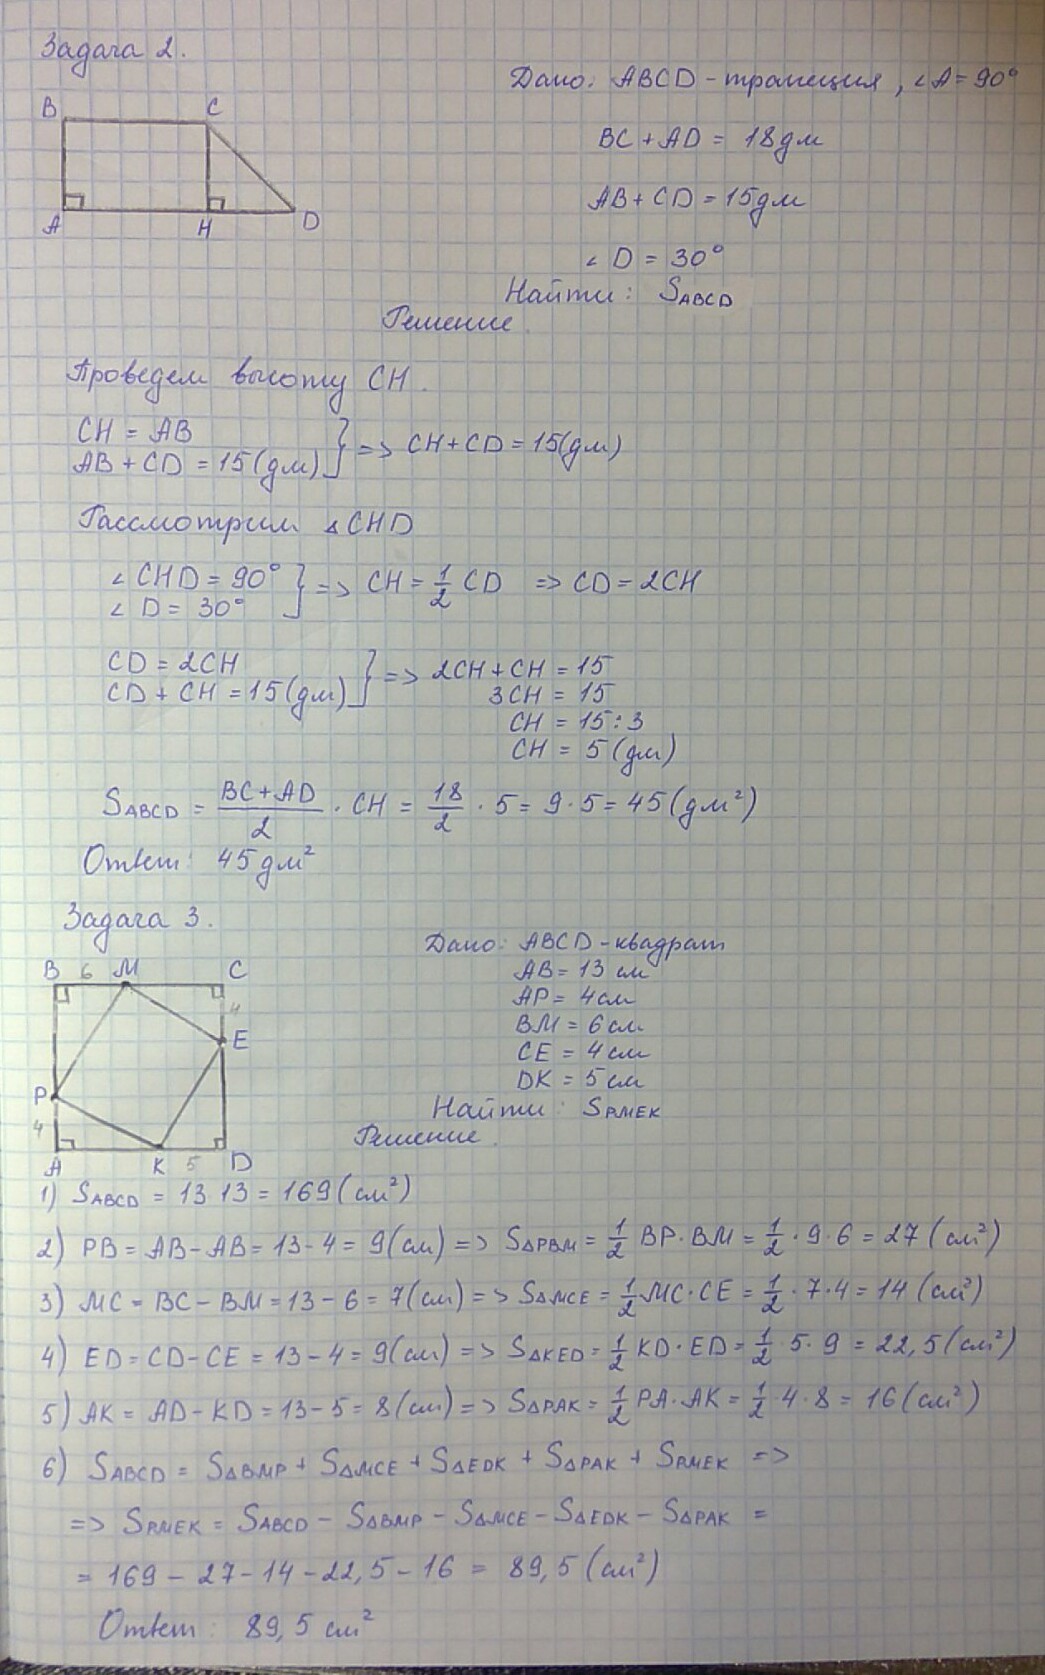 Задача 2.
Дано: ABCD - трапеция, ∠A = 90°
B C
BC + AD = 18дм
AB + CD = 15дм
A H D
∠ D = 30°
Найти: SABCD
Решение.
Проведем высоту CH.
CH = AB
AB + CD = 15(дм) } => CH + CD = 15(дм)
Рассмотрим △CHD
∠ CHD = 90°
∠ D = 30° } => CH = 1/2 CD => CD = 2CH
CD = 2CH
CD + CH = 15(дм) } => 2CH + CH = 15
3CH = 15
CH = 15 : 3
CH = 5 (дм)
SABCD = (BC + AD)/2 · CH = 18/2 · 5 = 9 · 5 = 45 (дм²)
Ответ: 45 дм²
Задача 3.
Дано: ABCD - квадрат
B 6 M C
AB = 13 см
AP = 4см
4
BM = 6см
E
CE = 4 см
DK = 5 см
P
4
Найти: SPMEK
Решение.
A K 5 D
1) SABCD = 13·13 = 169 (см²)
2) PB = AB - AB = 13 - 4 = 9(см) => S△PBM = 1/2 BP · BM = 1/2 · 9 · 6 = 27 (см²)
3) MC = BC - BM = 13 - 6 = 7(см) => S△MCE = 1/2 MC · CE = 1/2 · 7 · 4 = 14 (см²)
4) ED = CD - CE = 13 - 4 = 9(см) => S△KED = 1/2 KD · ED = 1/2 · 5 · 9 = 22,5 (см²)
5) AK = AD - KD = 13 - 5 = 8 (см) => S△PAK = 1/2 PA · AK = 1/2 · 4 · 8 = 16 (см²)
6) SABCD = S△BMP + S△MCE + S△EDK + S△PAK + SPMEK =>
=> SPMEK = SABCD - S△BMP - S△MCE - S△EDK - S△PAK =
= 169 - 27 - 14 - 22,5 - 16 = 89,5 (см²)
Ответ: 89,5 см²